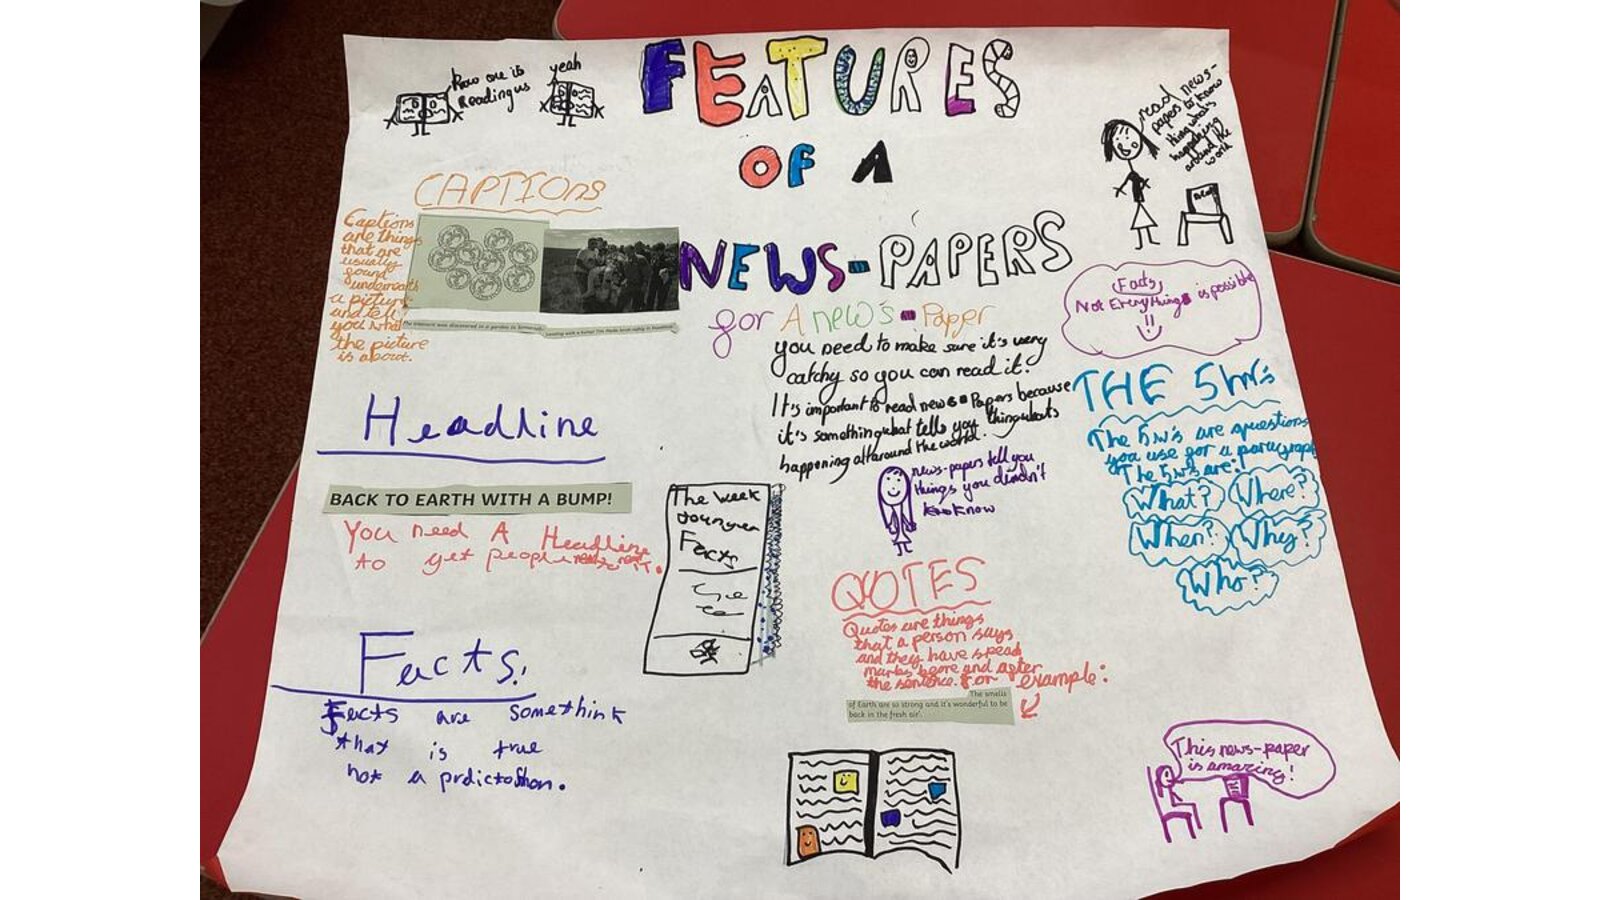 yeah
Reading us
FEATURES
OF A
NEWS-PAPERS
read news-
papers to know
thing whats
happening
around the
world
CAPTIONS
Captions
are things
that are
usually
found
underneath
a picture
and tell
you what
the picture
is about.
The treasure was discovered in a garden in Somerset.
for A news-Paper
you need to make sure it's very
catchy so you can read it.
It's important to read news-Papers because
it's something what tells you thing whats
happening all around the world.
Facts
Not Everything is possible
!!
THE 5 W's
The 5w's are questions
you use for a paragraph
The 5w's are:
What? Where?
When? Why?
Who?
Headline
BACK TO EARTH WITH A BUMP!
You need A Headline
to get people
The Week
Facts
news-papers tell you
things you dindn't
know
QUOTES
Quotes are things
that a person says
and they have speach
marks beore and after
the sentence. For example:
The smells
of Earth are so strong and it's wonderful to be
back in the fresh air'.
Facts.
Facts are somethink
that is true
not a
This news-paper
is amazing!